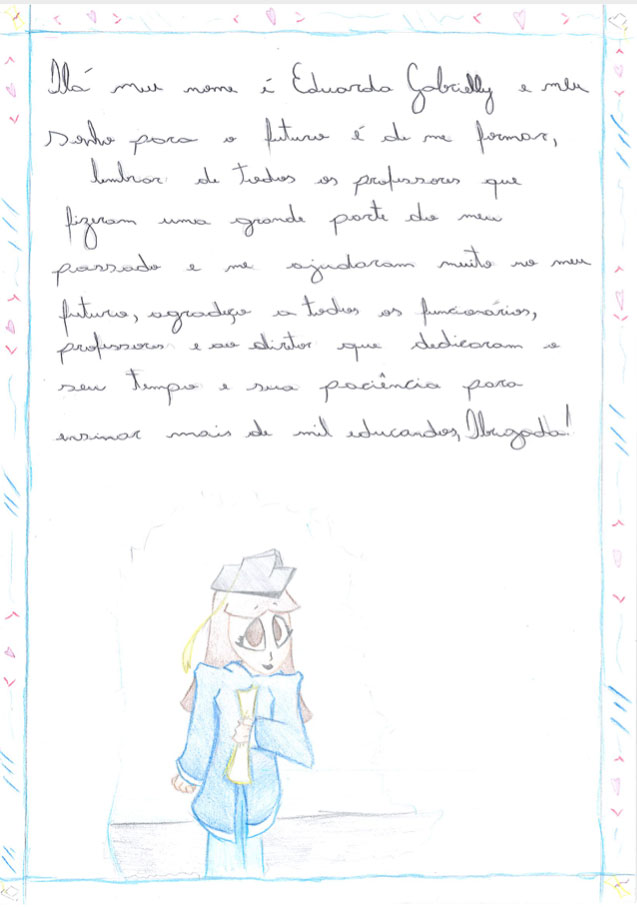 Olá meu nome é Eduarda Gabrielly e meu
sonho para o futuro é de me formar,
lembrar de todos os professores que
fizeram uma grande parte do meu
passado e me ajudaram muito no meu
futuro, agradeço a todos os funcionários,
professores e ao diretor que dedicaram o
seu tempo e sua paciência para
ensinar mais de mil educandos, Obrigada!